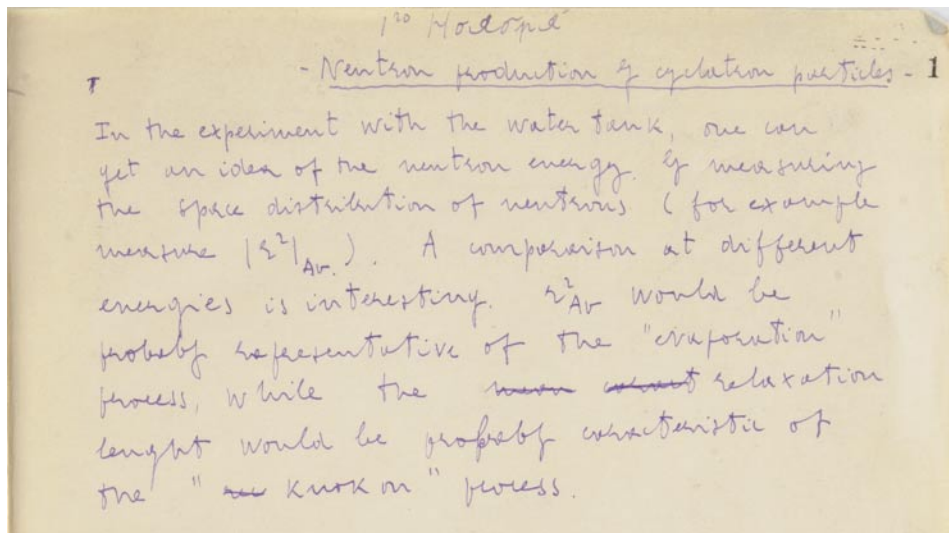 1го Ноября
- Neutron production by cyclotron particles - 1
In the experiment with the water tank, one can
get an idea of the neutron energy by measuring
the space distribution of neutrons (for example
measure |r²|Av.). A comparison at different
energies is interesting. r²Av would be
probably representative of the "evaporation"
process, while the mean relaxation
lenght would be probably caracteristic of
the " knok on " process.